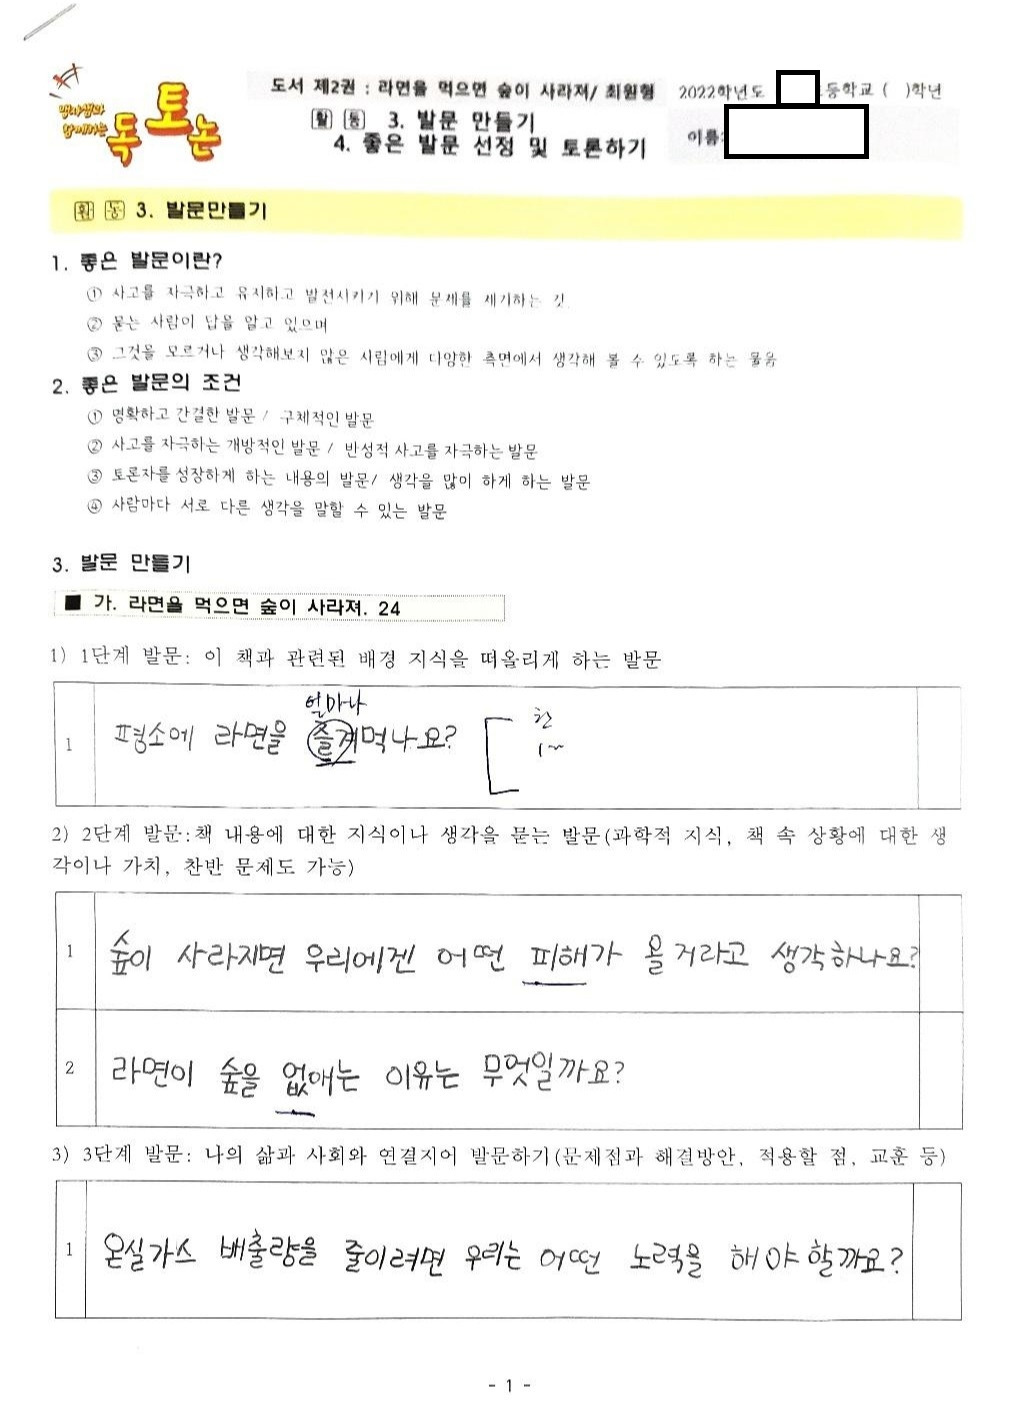 맹샘과 함께하는 독토논
도서 제2권 : 라면을 먹으면 숲이 사라져/ 최원형
2022학년도 등학교 ( )학년
활동 3. 발문 만들기
이름:
4. 좋은 발문 선정 및 토론하기
활동 3. 발문만들기
1. 좋은 발문이란?
① 사고를 자극하고 유지하고 발전시키기 위해 문제를 제기하는 것
② 묻는 사람이 답을 알고 있으며
③ 그것을 모르거나 생각해보지 않은 사람에게 다양한 측면에서 생각해 볼 수 있도록 하는 물음
2. 좋은 발문의 조건
① 명확하고 간결한 발문 / 구체적인 발문
② 사고를 자극하는 개방적인 발문 / 반성적 사고를 자극하는 발문
③ 토론자를 성장하게 하는 내용의 발문/ 생각을 많이 하게 하는 발문
④ 사람마다 서로 다른 생각을 말할 수 있는 발문
3. 발문 만들기
■ 가. 라면을 먹으면 숲이 사라져. 24
1) 1단계 발문: 이 책과 관련된 배경 지식을 떠올리게 하는 발문
얼마나
1 평소에 라면을 즐겨먹나요?
1~
2) 2단계 발문:책 내용에 대한 지식이나 생각을 묻는 발문(과학적 지식, 책 속 상황에 대한 생
각이나 가치, 찬반 문제도 가능)
1 숲이 사라지면 우리에겐 어떤 피해가 올거라고 생각하나요?
2 라면이 숲을 없애는 이유는 무엇일까요?
3) 3단계 발문: 나의 삶과 사회와 연결지어 발문하기(문제점과 해결방안, 적용할 점, 교훈 등)
1 온실가스 배출량을 줄이려면 우리는 어떤 노력을 해야 할까요?
- 1 -